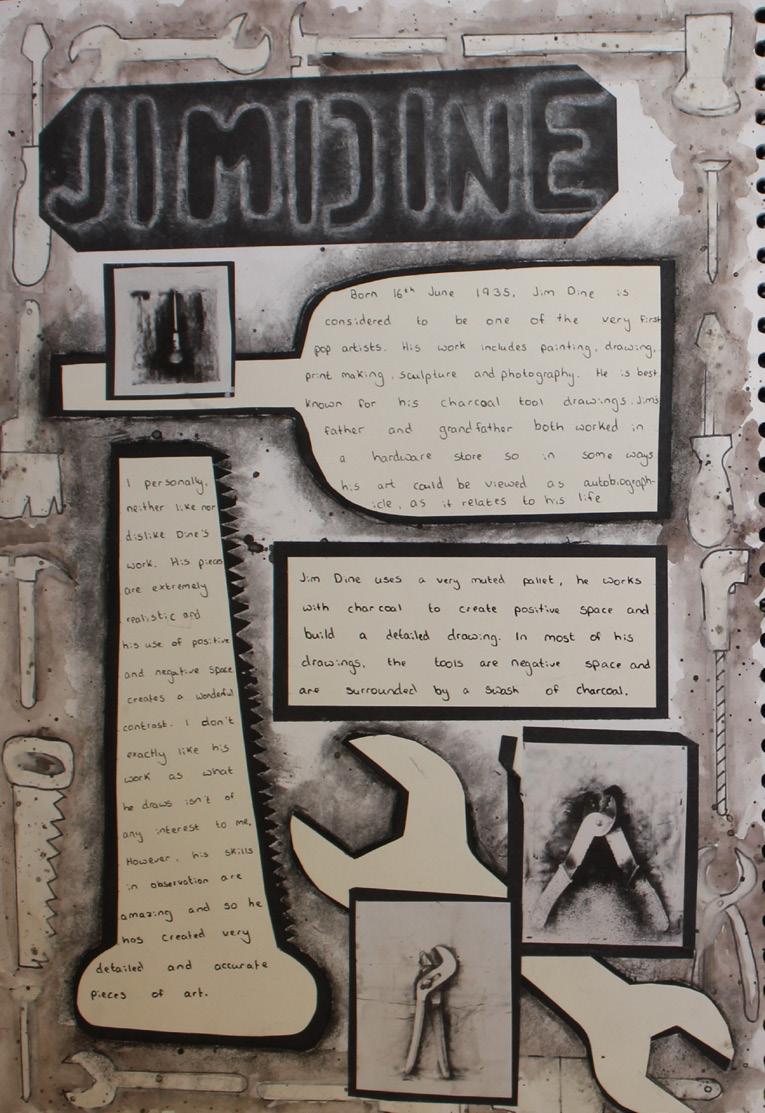 JIM DINE
Born 16th June 1935, Jim Dine is
considered to be one of the very first
pop artists. His work includes painting, drawing,
print making, sculpture and photography. He is best
known for his charcoal tool drawings. Jim's
father and grandfather both worked in
a hardware store so in some ways
his art could be viewed as autobiograph-
icle, as it relates to his life
I personally,
neither like nor
dislike Dine's
work. His pieces
are extremely
realistic and
his use of positive
and negative space
creates a wonderful
contrast. I don't
exactly like his
work as what
he draws isn't of
any interest to me,
However, his skills
in observation are
amazing and so he
has created very
detailed and accurate
pieces of art.
Jim Dine uses a very muted pallet, he works
with charcoal to create positive space and
build a detailed drawing. In most of his
drawings, the tools are negative space and
are surrounded by a swash of charcoal.